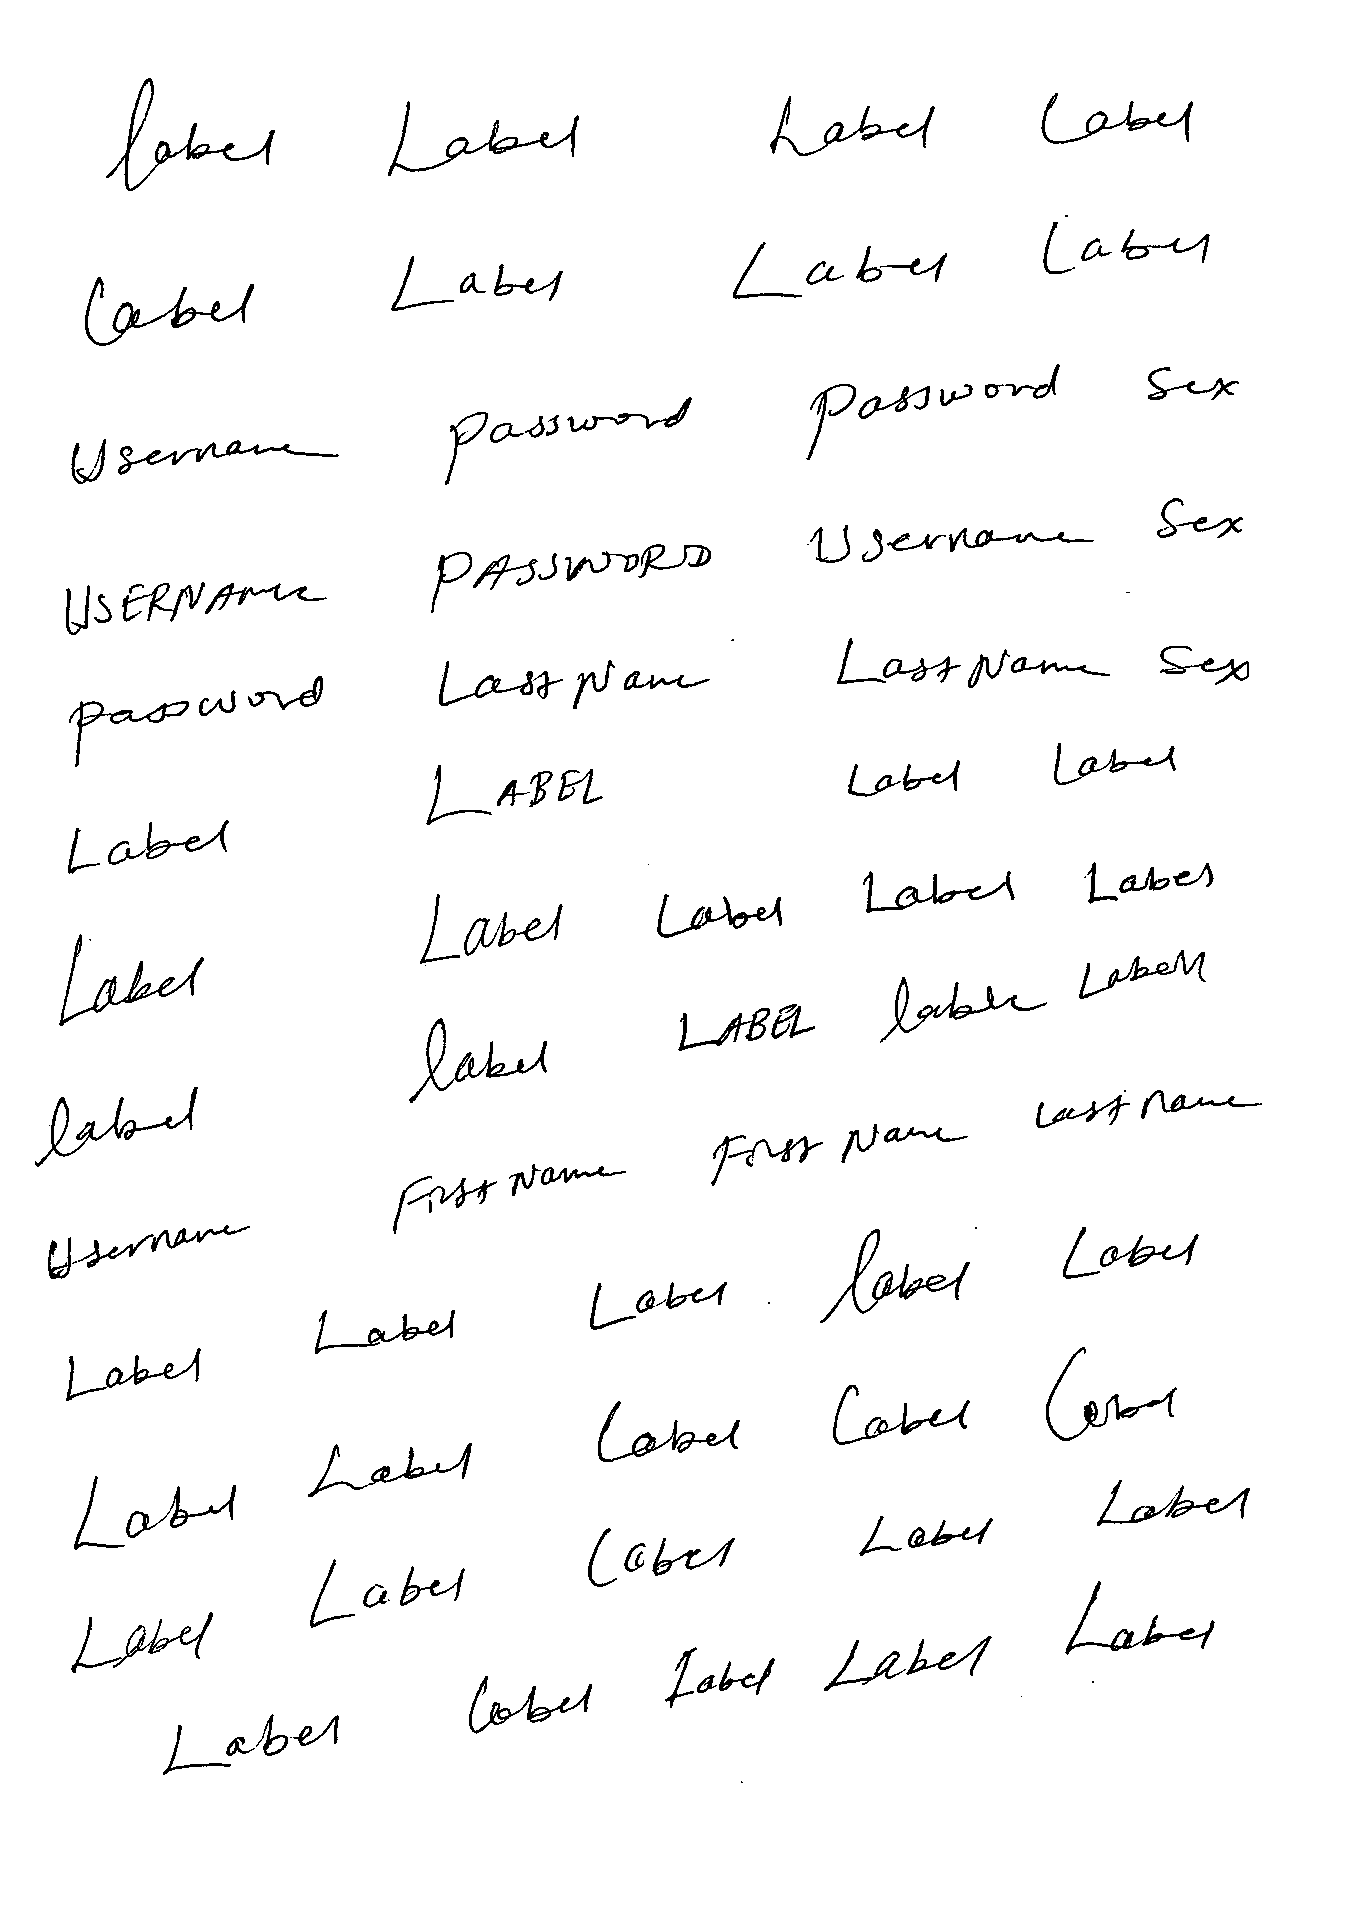 label Label Label Label
Label Label Label Label
Username Password Password Sex
USERNAME PASSWORD Username Sex
Password LastName LastName Sex
Label LABEL Label Label
Label Label Label Label Label
label label LABEL lable Labell
Username FirstName First Name Last name
Label Label Label label Label
Label Label Label Label
Label Label Label Label Label
Label Label Label Label Label